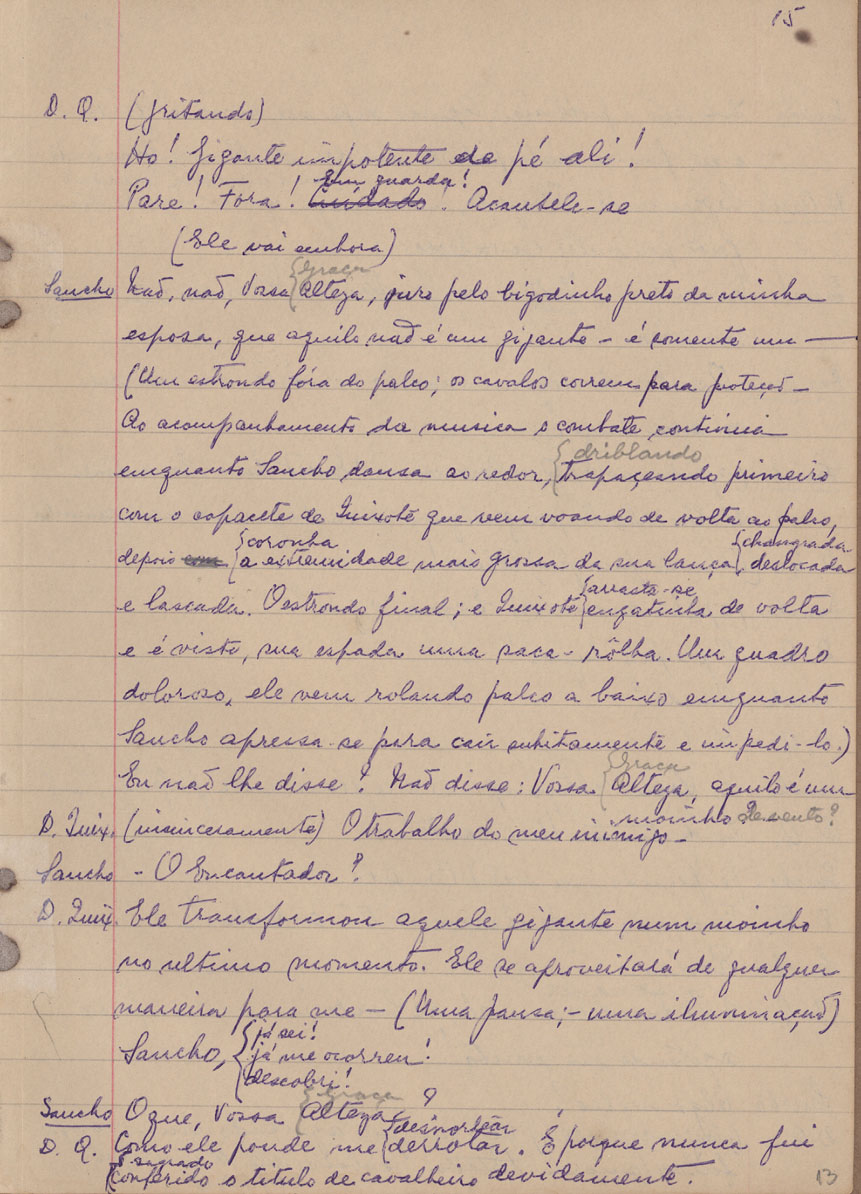 15
D. Q. (gritando)
Ho! Gigante impotente de pé ali!
Em guarda!
Pare! Fora! Cuidado! Acautele-se
(Ele vai embora)
Graça
Sancho Não, não, Vossa { Alteza, juro pelo bigodinho preto da minha
esposa, que aquilo não é um gigante - é somente um —
(Um estrondo fóra do palco; os cavalos correm para proteçã -
Ao acompanhamento da musica o combate continúa
driblando
emquanto Sancho dansa ao redor, { trapaçeando primeiro
com o capacete de Quixote que vem voando de volta ao palco,
coronha changrada
depois com { a extremidade mais grossa da sua lança, { deslocada
arrasta-se
e lascada. O estrondo final; e Quixote { engatinha de volta
e é visto, sua espada uma saca-rôlha. Um quadro
doloroso, ele vem rolando palco a baixo emquanto
Sancho apressa-se para cair subitamente e impedi-lo.)
Graça
Eu não lhe disse? Não disse: Vossa { Alteza, aquilo é um
moinho de vento?
D. Quix. (insinceramente) O trabalho do meu inimigo -
Sancho - O Encantador?
D. Quix. Ele transformou aquele gigante num moinho
no ultimo momento. Ele se aproveitará de qualquer
maneira para me — (Uma pausa; - uma iluminação)
já sei!
Sancho, { já me ocorreu!
descobri!
Graça
Sancho O que, Vossa { Alteza?
desnortear
D. Q. Como ele poude me { derrotar. É porque nunca fui
sagrado
{ conferido o titulo de cavalheiro devidamente.
13